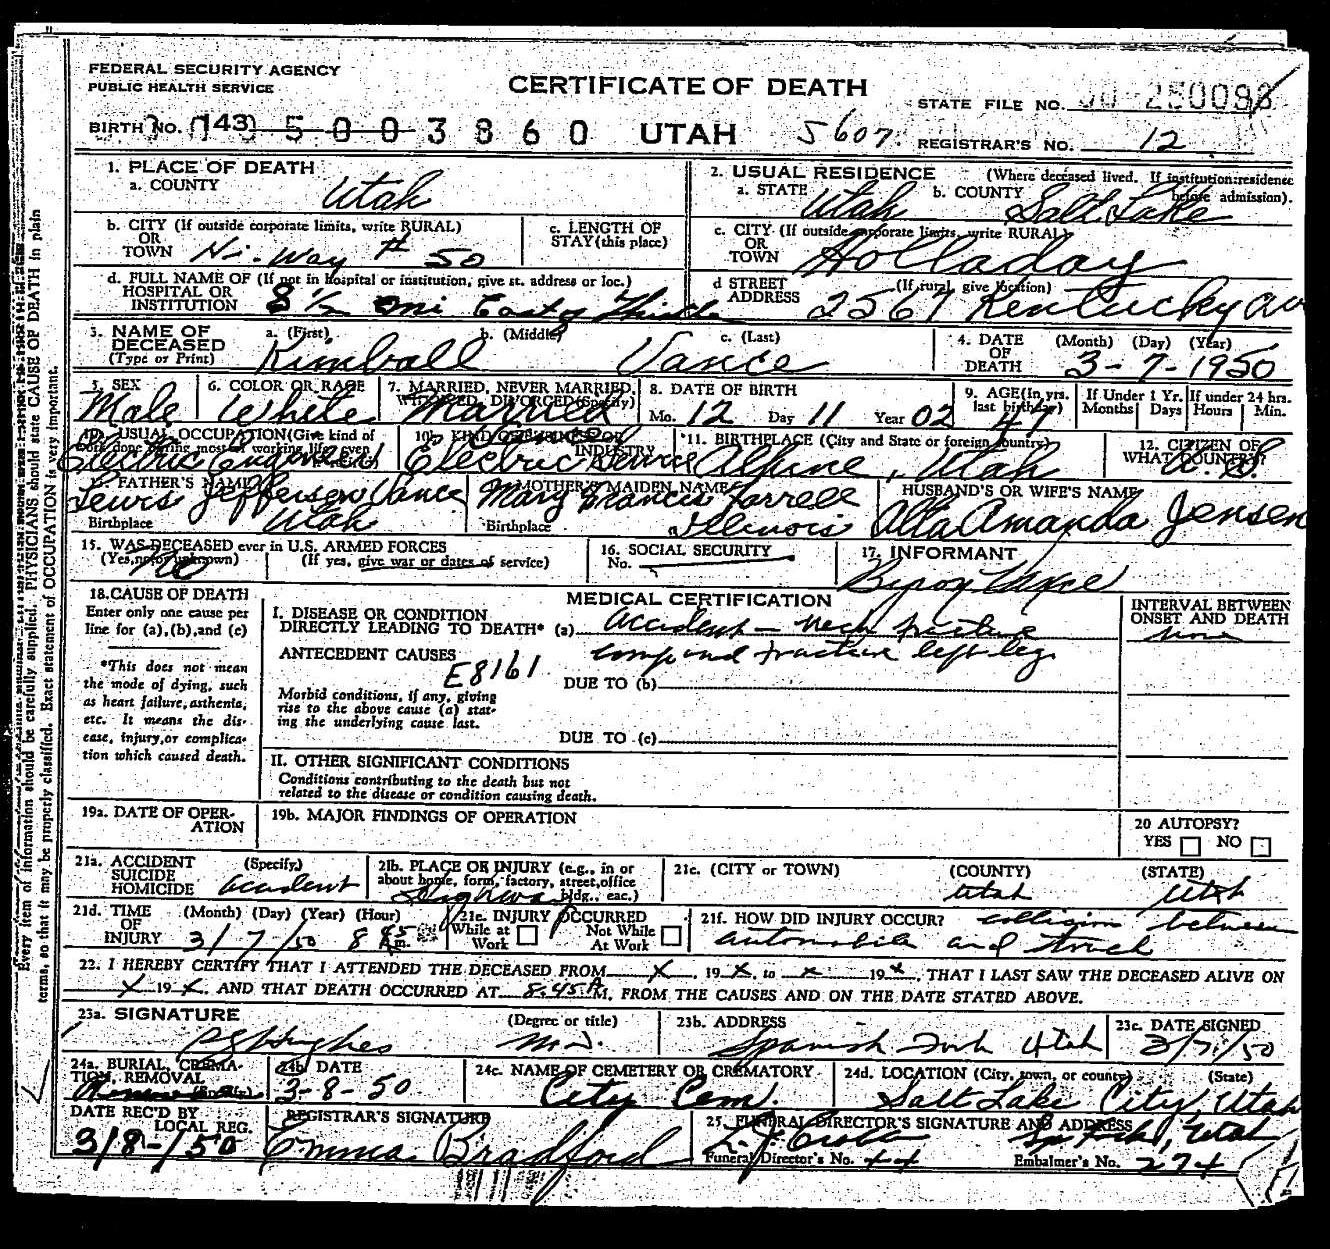 FEDERAL SECURITY AGENCY
PUBLIC HEALTH SERVICE
CERTIFICATE OF DEATH
STATE FILE NO.
BIRTH NO. (143) 5003860 UTAH 5607. REGISTRAR'S NO. 12
1. PLACE OF DEATH
a. COUNTY Utah
2. USUAL RESIDENCE (Where deceased lived. If institution: residence before admission).
a. STATE Utah b. COUNTY Salt Lake
b. CITY (If outside corporate limits, write RURAL) OR TOWN Hi. Way # 50
c. LENGTH OF STAY (this place)
c. CITY (If outside corporate limits, write RURAL) OR TOWN Holladay
d. FULL NAME OF (If not in hospital or institution, give st. address or loc.) HOSPITAL OR INSTITUTION 8 1/2 mi East of Thistle
d STREET ADDRESS (If rural, give location) 2567 Kentucky av
3. NAME OF DECEASED (Type or Print) a. (First) Kimball b. (Middle) c. (Last) Vance
4. DATE OF DEATH (Month) (Day) (Year) 3-7-1950
5. SEX Male
6. COLOR OR RACE White
7. MARRIED, NEVER MARRIED, WIDOWED, DIVORCED (Specify) Married
8. DATE OF BIRTH Mo. 12 Day 11 Year 02
9. AGE (In yrs. last birthday) 47
If Under 1 Yr. Months Days
If under 24 hrs. Hours Min.
10a. USUAL OCCUPATION (Give kind of work done during most of working life, even Electric
10b. KIND OF BUSINESS OR INDUSTRY Electric Service
11. BIRTHPLACE (City and State or foreign country) Alpine, Utah
12. CITIZEN OF WHAT COUNTRY? U.S.
FATHER'S NAME Lewis Jefferson Vance
Birthplace Utah
MOTHER'S MAIDEN NAME Mary Francis Farrell
Birthplace Illinois
HUSBAND'S OR WIFE'S NAME Alta Amanda Jensen
15. WAS DECEASED ever in U.S. ARMED FORCES
(Yes, no, or unknown) No (If yes, give war or dates of service)
16. SOCIAL SECURITY No.
17. INFORMANT Byron Vance
18. CAUSE OF DEATH
Enter only one cause per line for (a), (b), and (c)
*This does not mean the mode of dying, such as heart failure, asthenia, etc. It means the disease, injury, or complication which caused death.
MEDICAL CERTIFICATION
I. DISEASE OR CONDITION DIRECTLY LEADING TO DEATH* (a) Accident - neck fracture
compound fracture left leg
INTERVAL BETWEEN ONSET AND DEATH
ANTECEDENT CAUSES E8161
Morbid conditions, if any, giving rise to the above cause (a) stating the underlying cause last.
DUE TO (b)
DUE TO (c)
II. OTHER SIGNIFICANT CONDITIONS
Conditions contributing to the death but not related to the disease or condition causing death.
19a. DATE OF OPERATION
19b. MAJOR FINDINGS OF OPERATION
20 AUTOPSY? YES NO
21a. ACCIDENT SUICIDE HOMICIDE (Specify) accident
21b. PLACE OF INJURY (e.g., in or about home, form, factory, street, office bldg., eac.) Highway
21c. (CITY or TOWN) (COUNTY) Utah (STATE) Utah
21d. TIME OF INJURY (Month) (Day) (Year) (Hour) 3/7/50 8 45 Am.
21e. INJURY OCCURRED While at Work Not While At Work
21f. HOW DID INJURY OCCUR? collision between automobile and truck
22. I HEREBY CERTIFY THAT I ATTENDED THE DECEASED FROM x, 19 x, to x 19 x, THAT I LAST SAW THE DECEASED ALIVE ON
x 19 x, AND THAT DEATH OCCURRED AT 8:45 A M, FROM THE CAUSES AND ON THE DATE STATED ABOVE.
23a. SIGNATURE Hughes (Degree or title) M.D.
23b. ADDRESS Spanish Fork Utah
23c. DATE SIGNED 3/7/50
24a. BURIAL, CREMATION, REMOVAL
24b. DATE 3-8-50
24c. NAME OF CEMETERY OR CREMATORY City Cem.
24d. LOCATION (City, town, or county) (State) Salt Lake City, Utah
DATE REC'D BY LOCAL REG. 3/8-/50
REGISTRAR'S SIGNATURE Emma Bradford
25. FUNERAL DIRECTOR'S SIGNATURE AND ADDRESS Sp. Fork, Utah
Funeral Director's No. 44 Embalmer's No. 274
Every item of information should be carefully supplied. PHYSICIANS should state CAUSE OF DEATH in plain
terms, so that it may be properly classified. Exact statement of OCCUPATION is very important.